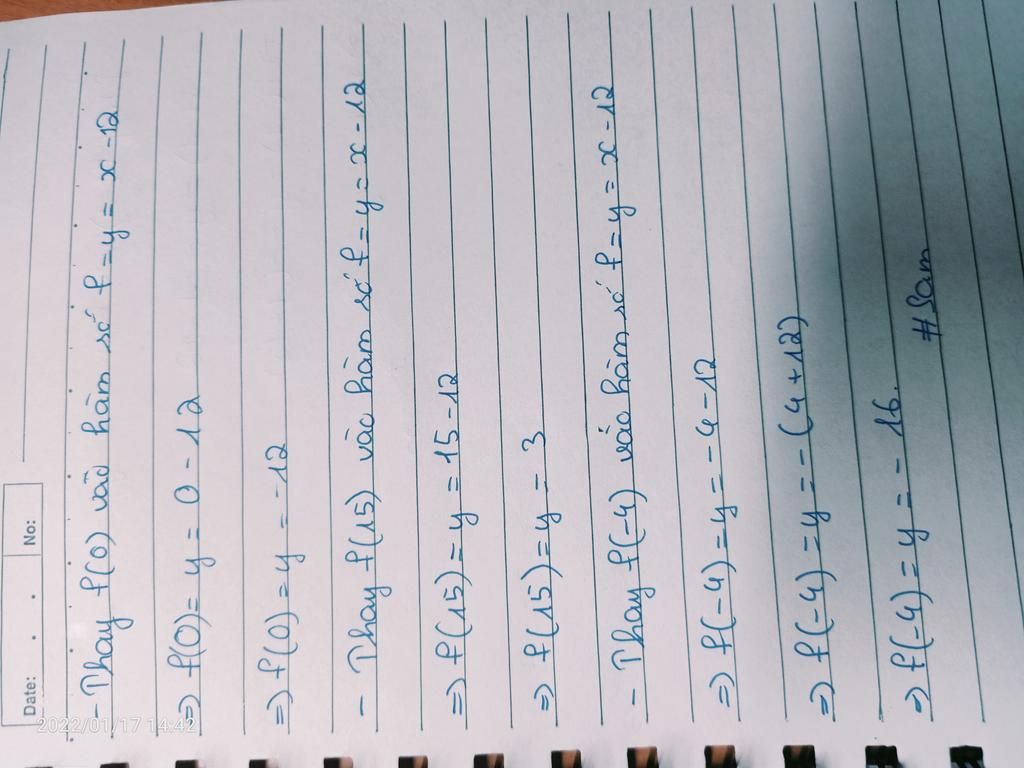 Date: . . No:
- Thay f(0) vào hàm số f = y = x - 12
=> f(0) = y = 0 - 12
=> f(0) = y = -12
- Thay f(15) vào hàm số f = y = x - 12
=> f(15) = y = 15 - 12
=> f(15) = y = 3
- Thay f(-4) vào hàm số f = y = x - 12
=> f(-4) = y = -4 - 12
=> f(-4) = y = -(4 + 12)
=> f(-4) = y = -16.
#Sam
2022/01/17 14:42